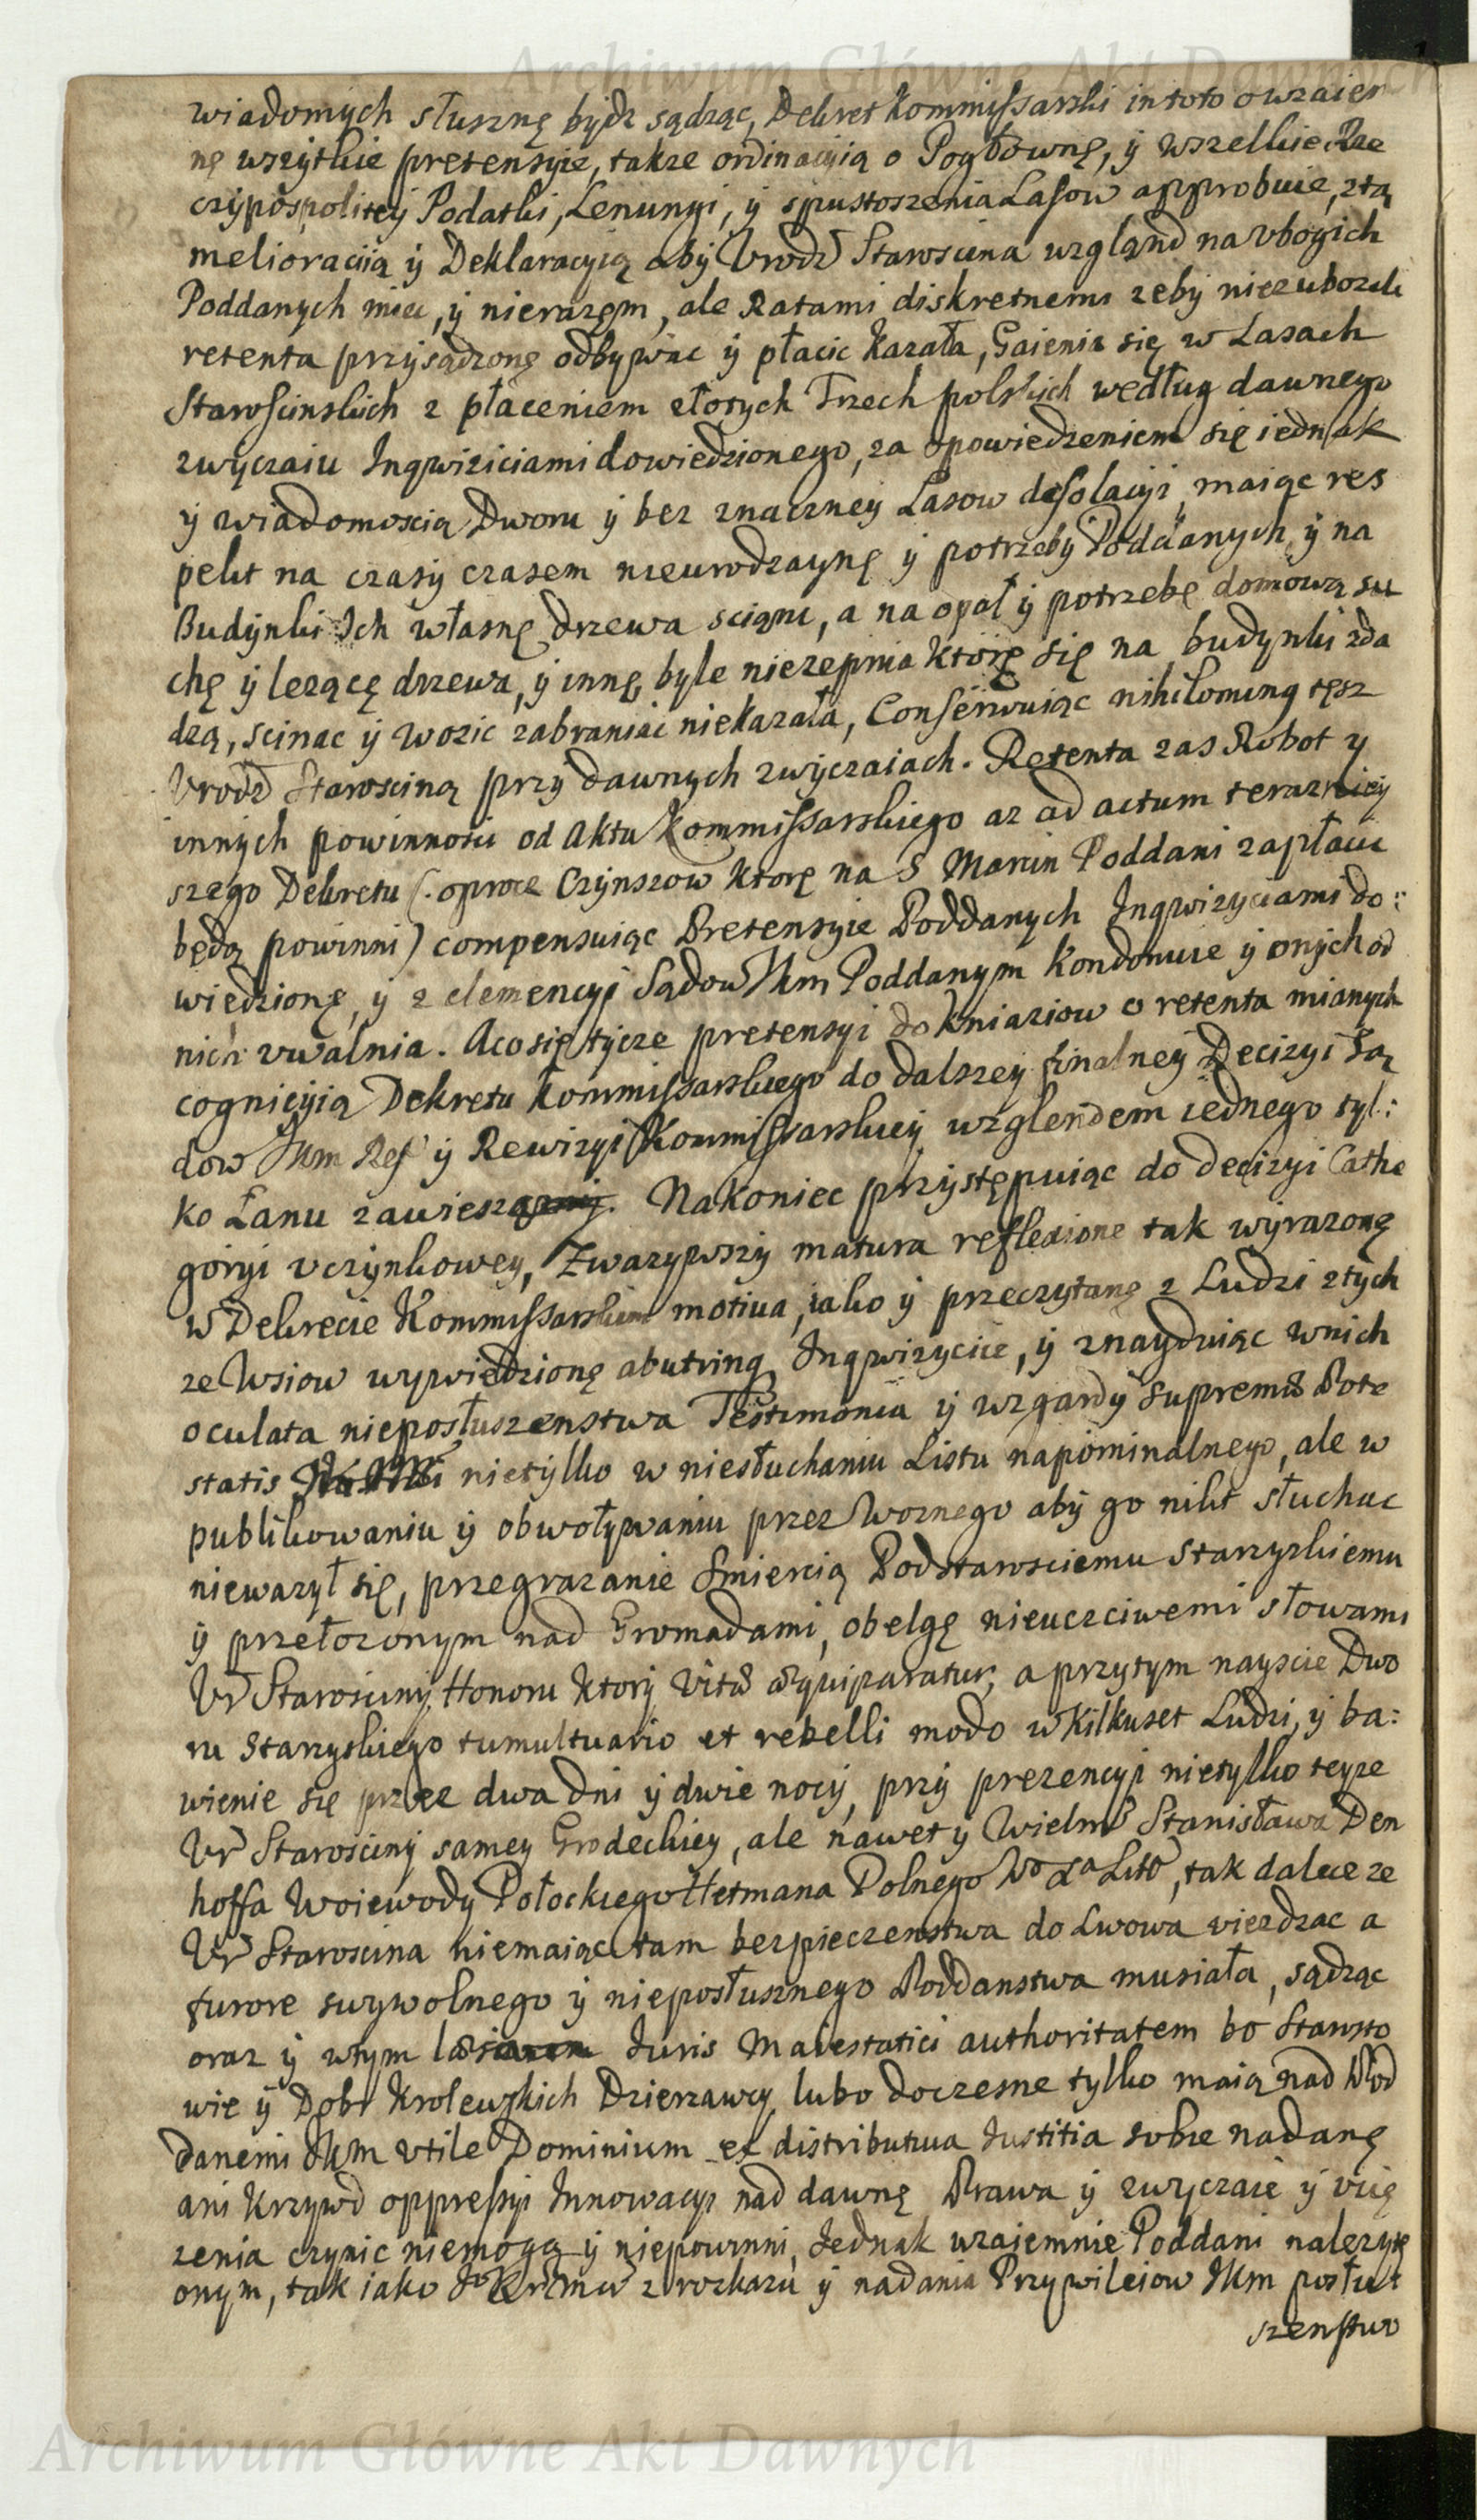 Archiwum Główne Akt Dawnych
wiadomych słusznę bydz sądząc, Dekret Kommissarski in toto o wzaiem
nę wszytkie pretensyie, takze ordinacyią o Pogłównę, ÿ wszelkie Rze
czÿpospoliteÿ Podatki, Lenungi, ÿ spustoszenia Lasow approbuie, ztą
melioraciią ÿ Deklaracyią abÿ Vrodz Staroscina wzgląnd na Vbogich
Poddanych miec, ÿ nierazem, ale Ratami diskretnemi zebÿ niezubozeli
retenta przÿsądzonę odbywac ÿ płacic kazała, Gaienia się w Lasach
Staroscinskich z płaceniem złotych Trzech polskich według dawnego
zwyczaiu Inqwiziciami dowiedzionego, za opowiedzeniem się iednak
ÿ wiadomoscią Dworu ÿ bez znaczneÿ Lasow desolacÿi, maiąc res
pekt na czasÿ czasem nieurodzaynę ÿ potrzebÿ Poddanych, ÿ na
Budÿnki Ich własnę drzewa sciąni, a na opał ÿ potrzebę domową su
chę ÿ lezącę drzewa, ÿ innę, byle niezepnia ktorę się na budynki zda
dzą, scinac ÿ wozic zabraniac niekazała, Conserwuiąc nihilominq tesz
Vrodz Starosciną przÿ dawnych zwÿczaiach. Retenta zas Robot ÿ
innÿch powinnosci od Aktu Kommissarskiego az ad actum teraznieÿ
szego Dekretu (: oprocz Czÿnszow ktorę na S Marcin Poddani zapłacic
będą powinni) compensuiąc Pretensyie Poddanych Inqwizyciami do:
wiedzionę, ÿ z clemencyi Sądow Jkm Poddanym kondonuie ÿ onych od
nich vwalnia. Aco się tycze pretensyi do kniaziow o retenta mianych
cognicÿią Dekretu Kommissarskiego do dalszeÿ finalneÿ Decizyi Są
dow Jkm Ref ÿ Rewizyi Kommissarskieÿ wzglendem iednego tyl:
ko Łanu zawiesza. Nakoniec przÿstępuiąc do decizyi Cathe
gorÿi vczynkoweÿ, Zwazywszÿ matura reflexione tak wÿrazonę
w Dekrecie Kommissarskim motiua, iako ÿ przeczytanę z Ludzi ztÿch
ze Wsiow wywiedzionę abutrinq Inqwizycie, ÿ znayduiąc wnich
oculata nieposłuszenstwa Testimonia ÿ wzgardÿ Supremæ Pote
statis nietylko w niesłuchaniu Listu napominalnego, ale w
publikowaniu ÿ obwoływaniu przez Woznego abÿ go nikt słuchac
niewazył się, przegrazanie Smiercią Podstarosciemu Starzyskiemu
ÿ przełozonym nad Gromadami, obelgę nieuczciwemi słowami
Vr Staroscinÿ, Honoru ktorÿ Vitæ æquiparatur, a przytym nayscie Dwo
ru Starzyskiego tumultuario et rebelli modo w kilkuset Ludzi, ÿ ba:
wienie się przez dwa dni ÿ dwie nocÿ, przÿ prezencyi nietylko teyze
Vr Staroscinÿ sameÿ Grodeckieÿ, ale nawet ÿ Wielmo Stanisława Den
hoffa Woiewody Połockiego Hetmana Polnego Wo Xa Litto, tak dalece ze
Vr Staroscina niemaiąc tam bezpieczenstwa do Lwowa viezdzac a
furore swywolnego ÿ nieposłusznego Poddanstwa musiała, sądząc
oraz ÿ wtym Juris Maiestatici authoritatem bo Starosto
wie ÿ Dobr Krolewskich Dzierzawcy, lubo doczesne tylko maią nad Pod
danemi Jkm Vtile Dominium et distributiua Iustitia sobie nadanę
ani Krzywd oppressyi Innowacyi nad dawnę Prawa ÿ zwyczaie ÿ vcią
zenia czynic niemogą ÿ niepowinni, Jednak wzaiemnie Poddani nalezyte
onym, tak iako z rozkazu ÿ nadania Przywileiow Jkm posłu
szenstwo
Archiwum Główne Akt Dawnych